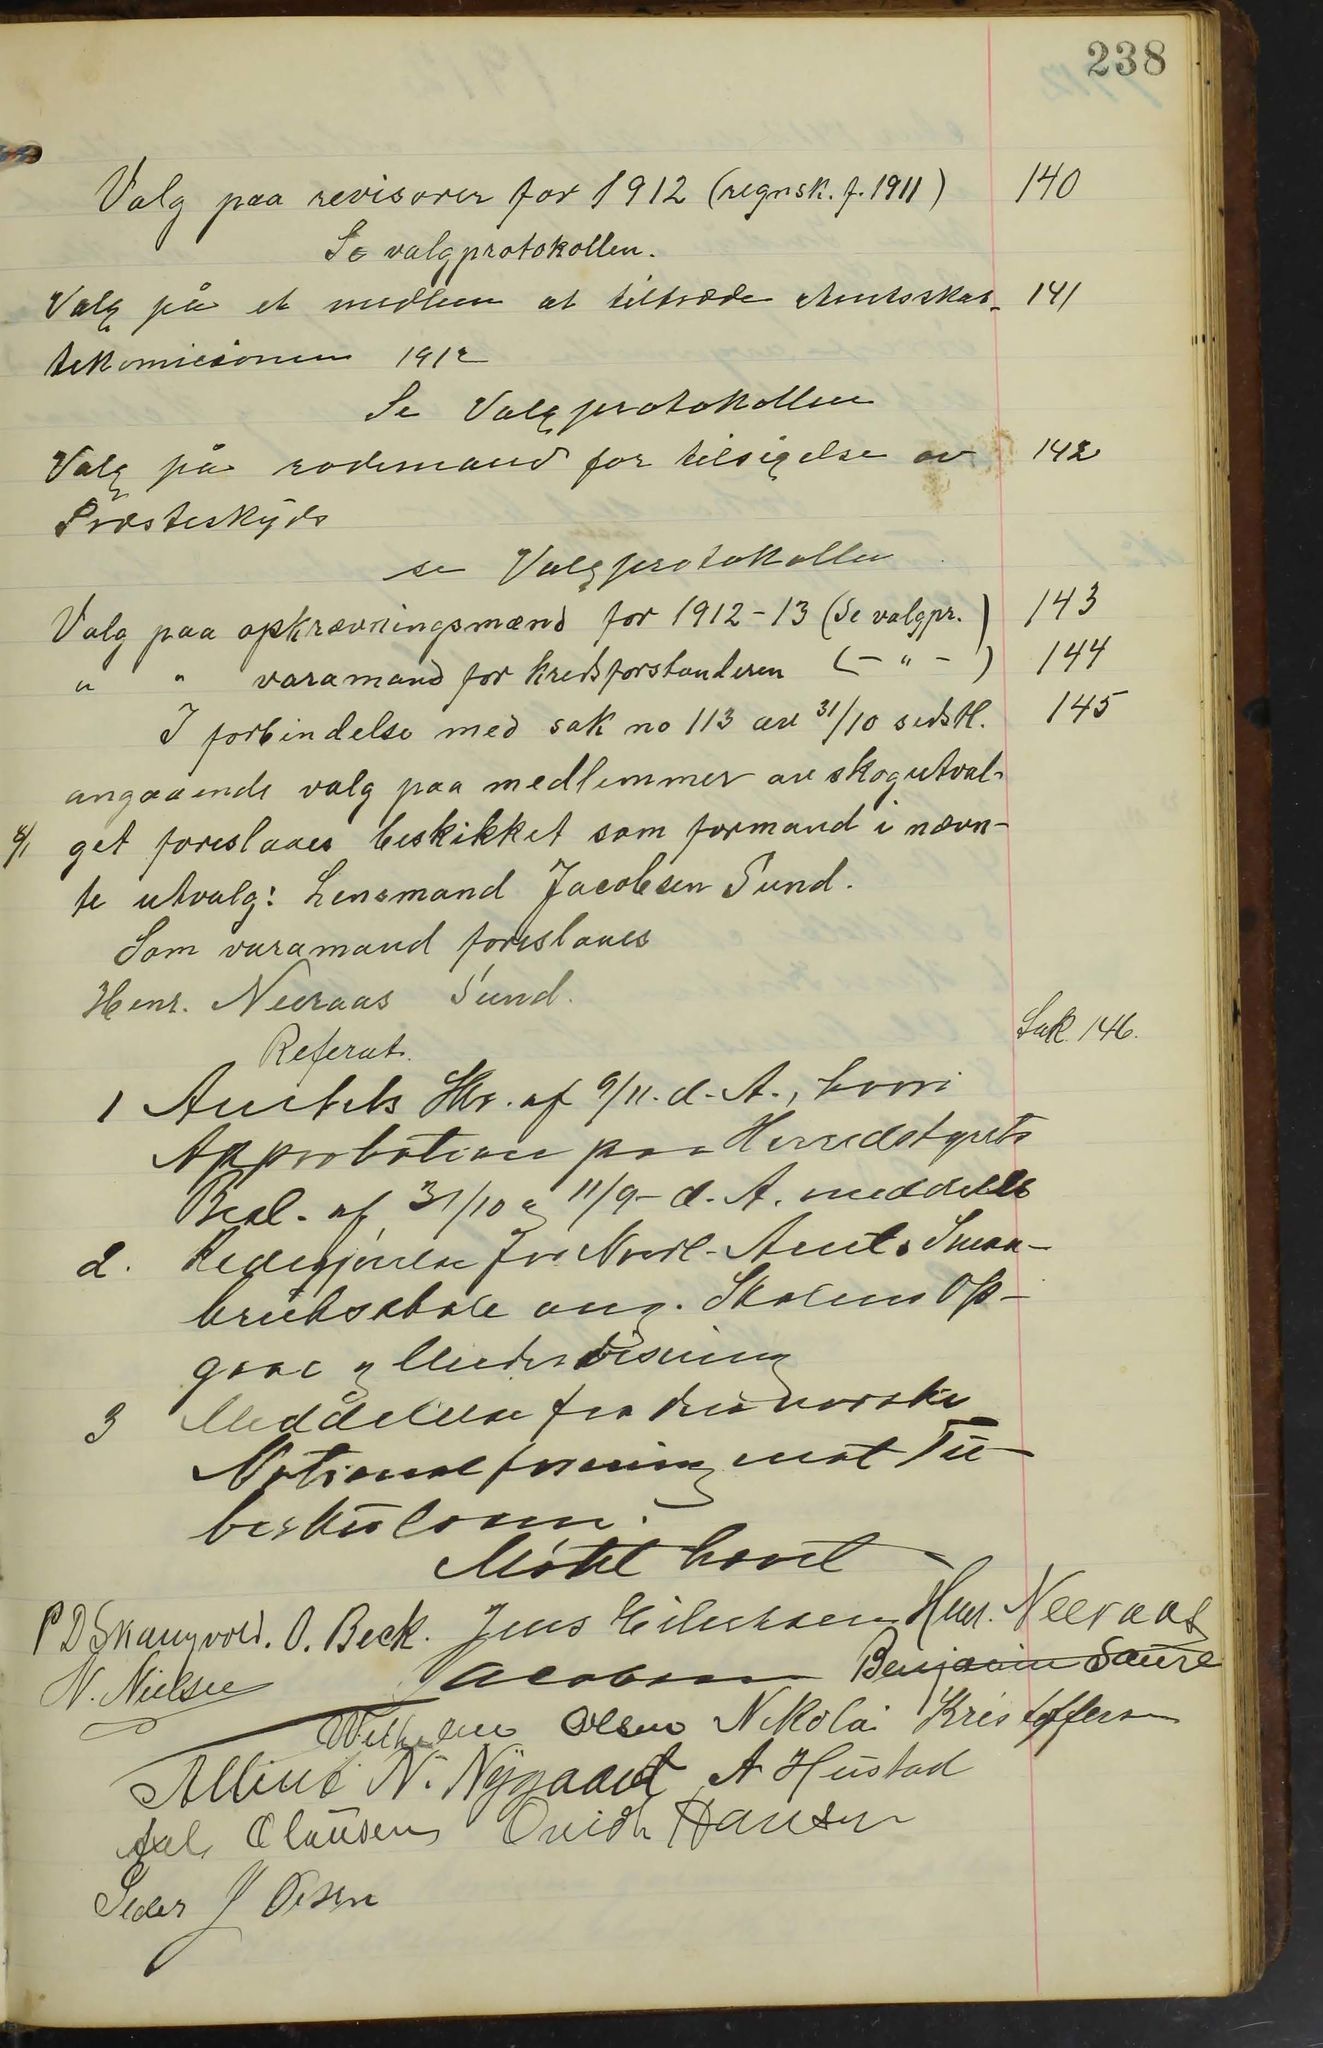 238
Valg paa revisorer for 1912 (regnsk. f. 1911) 140
Se valgprotokollen.
Valg på et medlem at tiltræde Amtsskat- 141
tekomisionen 1912
Se Valgprotokollen
Valg på rodemand for tilsigelse av 142
Præsteskyds
se Valgprotokollen
Valg paa opkrævningsmænd for 1912-13 (Se valgpr.) 143
" " varamand for kredsforstanderen (- " -) 144
I forbindelse med sak no 113 av 31/10 sidstl. 145
angaaende valg paa medlemmer av skogutval-
get foreslaaes beskikket som formand i nævn-
te utvalg: Lensmand Jacobsen Sund.
Som varamand foreslaaes
Henr. Neeraas Sund.
Referat. Sak 146.
1 Amtets Skr. af 9/11 d. A., hvori
Approbation paa Herredstyrets
Besl. af 31/10 og 11/9 - d. A. meddeles
2. Redegjørelse for Nordl. Amts Smaa-
brukskole ang. Skolens Op-
gave og Undervisning
3 Meddelelse fra den norske
Nationalforening mot Tu-
berkulosen.
Møtet hævet
P D Skaugvold. O. Beck. Jens Eilertsen Henr. Neeraas
N. Nielsen Jacobsen Benjamin Saure
Wilhelm Olsen Nikolai Kristoffersen
Albert N. Nygaard A Hustad
Clausen Ovidh Hansen
Peder J Olsen